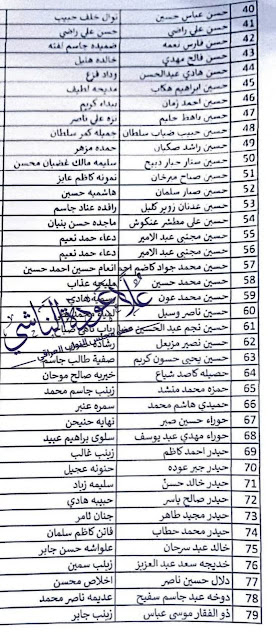 40 حسن عباس حسين نوال خلف حبيب
41 حسن علي راضي حسن علي راضي
42 حسن فارس نعمه ضميده جاسم لفته
43 حسن فالح مهدي خالده هليل
44 حسن هادي عبدالحسن وداد فزع
45 حسين ابراهيم هكاب مديحه لطيف
46 حسين احمد زمان بيداء كريم
47 حسين باهظ حليم نزه علي ناصر
48 حسين حبيب ضباب سلطان جميله كمر سلطان
49 حسين راشد صكبان حمده مزهر
50 حسين ستار جبار ذبيح سليمه مالك غضبان محسن
51 حسين صباح ميرخان نمونه كاظم عايز
52 حسين صبار سلمان هاشميه حسين
53 حسين عدنان زوير كليل رافده عناد جاسم
54 حسين علي مطشر عنكوش ماجده حسن بنيان
55 حسين مجتبى عبد الامير دعاء حمد نعيم
56 حسين مجتبى عبد الامير دعاء حمد نعيم
57 حسين محمد جواد كاظم احمد انعام حسين احمد حسين
58 حسين محمد حسين مليعيه عذاب
59 حسين محمد عون هادي
60 حسين ناصر وسيل
61 حسين نجم عبد الحسين رباب
62 حسين نصير مزيعل رشاده
63 حسين يحيى حسون كريم صفية طالب جاسم
64 حصيله كاصد شياع خيريه صالح موحان
65 حمزه محمد منشد زينب جاسم محمد
66 حميدي هاشم محمد سمره عنبر
67 حوراء حسين صبر نهايه حنيحن
68 حوراء مهدي عبد يوسف سلوى براهيم عبيد
69 حيدر احمد كاظم زينب غالب
70 حيدر جبر عوده حنونه عجيل
71 حيدر خالد حسن سليمه زياد
72 حيدر صالح ياسر حبيبه هادي
73 حيدر مجيد طاهر جنان ثامر
74 حيدر محمد حطاب فاتن كاظم سلمان
75 خالد عبد سرحان علواشه حسن جابر
76 خديجه سعيد عبد العزيز زينب سمين
77 دلال حسين ناصر اخلاص محسن
78 دوخه عبد جاسم سفيح عديمه ناصر محمد
79 ذو الفقار موسى عباس زينب جابر